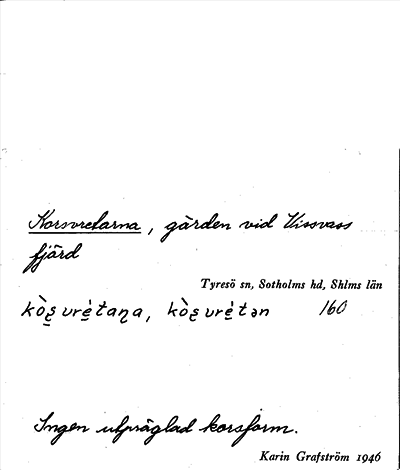 Korsvretarna, gärden vid Vissvass
fjärd
Tyresö sn, Sotholms hd, Shlms län
kòʂ vrè̱taɳa, kòʂ vrè̱tən 160
Ingen utpräglad korsform.
Karin Grafström 1946